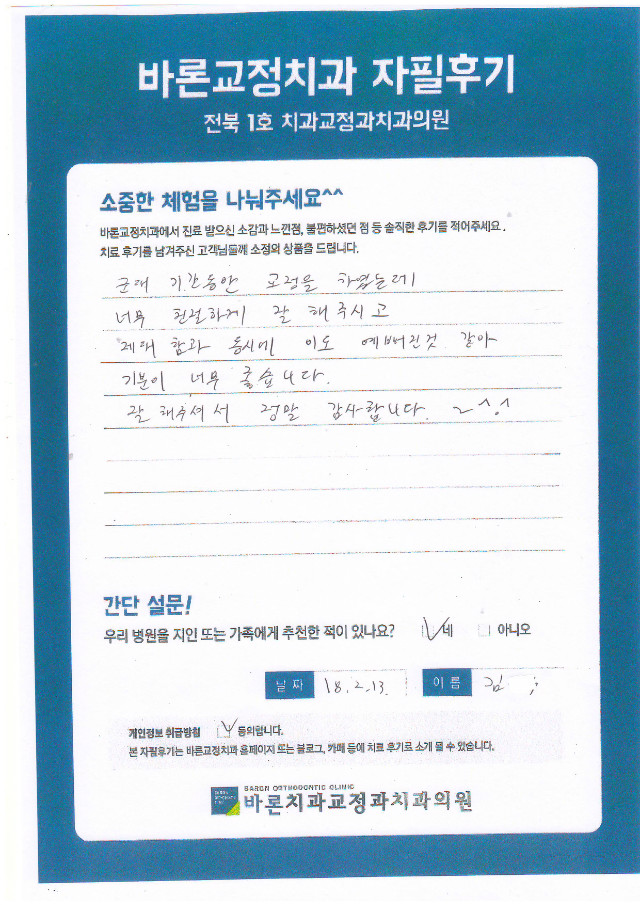 바론교정치과 자필후기
전북 1호 치과교정과치과의원
소중한 체험을 나눠주세요^^
바론교정치과에서 진료 받으신 소감과 느낀점, 불편하셨던 점 등 솔직한 후기를 적어주세요.
치료 후기를 남겨주신 고객님들께 소정의 상품을 드립니다.
군대 기간동안 교정을 하였는데
너무 친절하게 잘 해주시고
제대 함과 동시에 이도 예뻐진것 같아
기분이 너무 좋습니다.
잘 해주셔서 정말 감사합니다. ~^.^
간단 설문!
우리 병원을 지인 또는 가족에게 추천한 적이 있나요? 네 아니오
날짜 18.2.13 이름 김
개인정보 취급방침 동의합니다.
본 자필후기는 바론교정치과 홈페이지 또는 블로그, 카페 등에 치료 후기로 소개 될 수 있습니다.
BARON ORTHODONTIC CLINIC
바론치과교정과치과의원